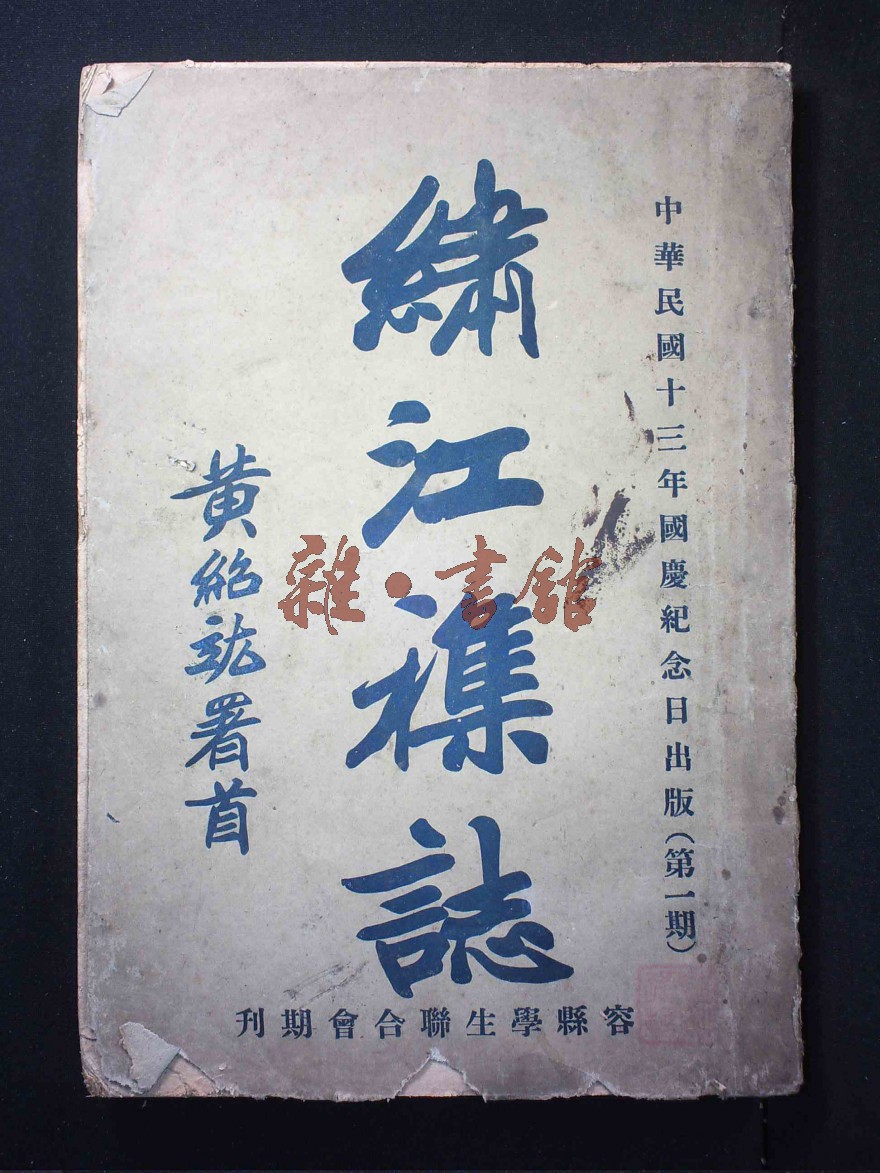 中華民國十三年國慶紀念日出版(第一期)
繡江襍誌
黃紹竑署首
容縣學生聯合會期刊
雜·書館